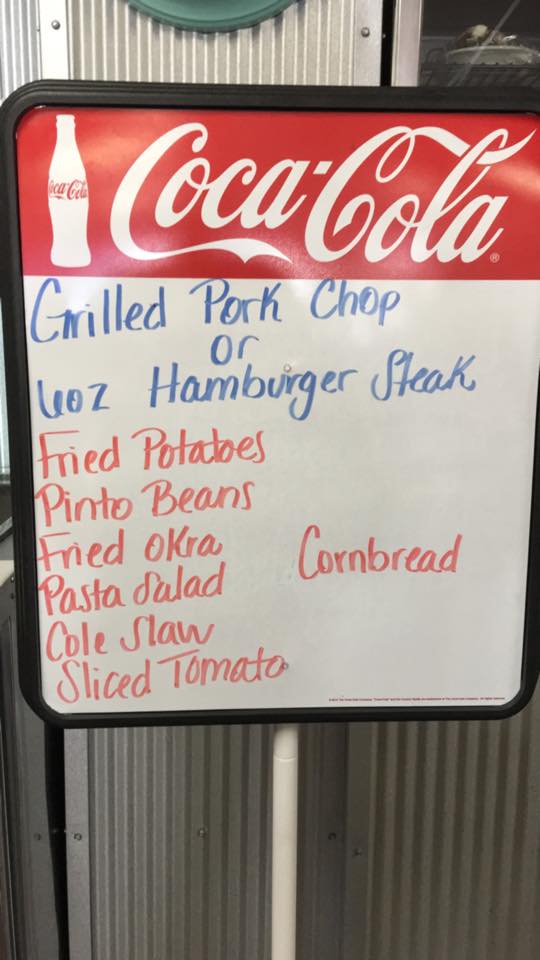 Coca-Cola
Coca-Cola®
Grilled Pork Chop
or
6oz Hamburger Steak
Fried Potatoes
Pinto Beans
Fried Okra
Cornbread
Pasta Salad
Cole Slaw
Sliced Tomato